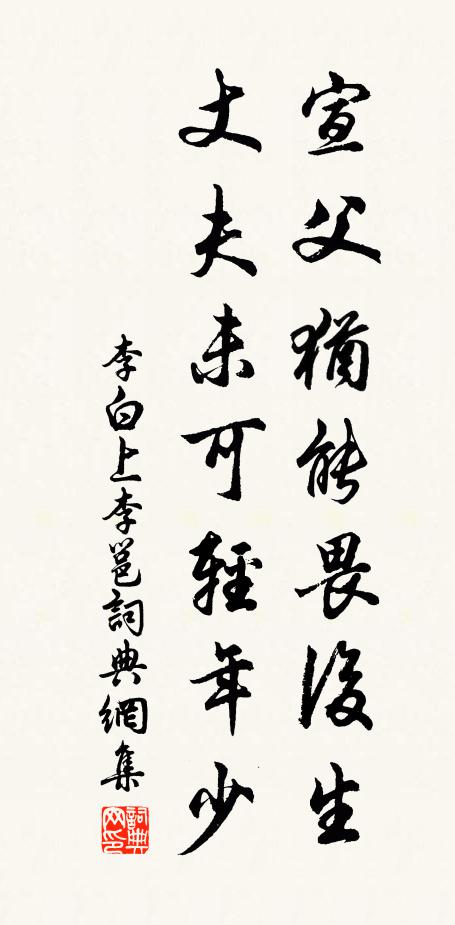 宣父猶能畏後生
丈夫未可輕年少
李白上李邕詞典網集
詞典
网印